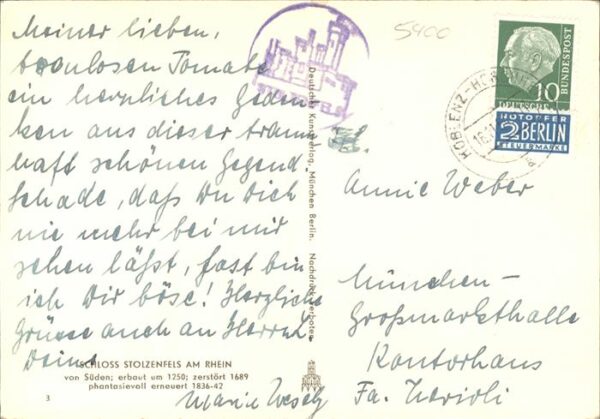 Meiner lieben,
treulosen Tomate
ein herzliches Geden
ken aus dieser traum
haft schönen Gegend.
Schade, daß Du Dich
nie mehr bei mir
sehen läßt, fast bin
ich Dir böse! Herzliche
Grüsse auch an Herrn
Deine
Marie
SCHLOSS STOLZENFELS AM RHEIN
von Süden; erbaut um 1250; zerstört 1689
phantasievoll erneuert 1836-42
3
Deutscher Kunstverlag, München Berlin. Nachdruck verboten
5400
KOBLENZ
DEUTSCHE BUNDESPOST
10
NOTOPFER
2 BERLIN
STEUERMARKE
Annie Weber
München-
Großmarkthalle
Kontorhaus
Fa.